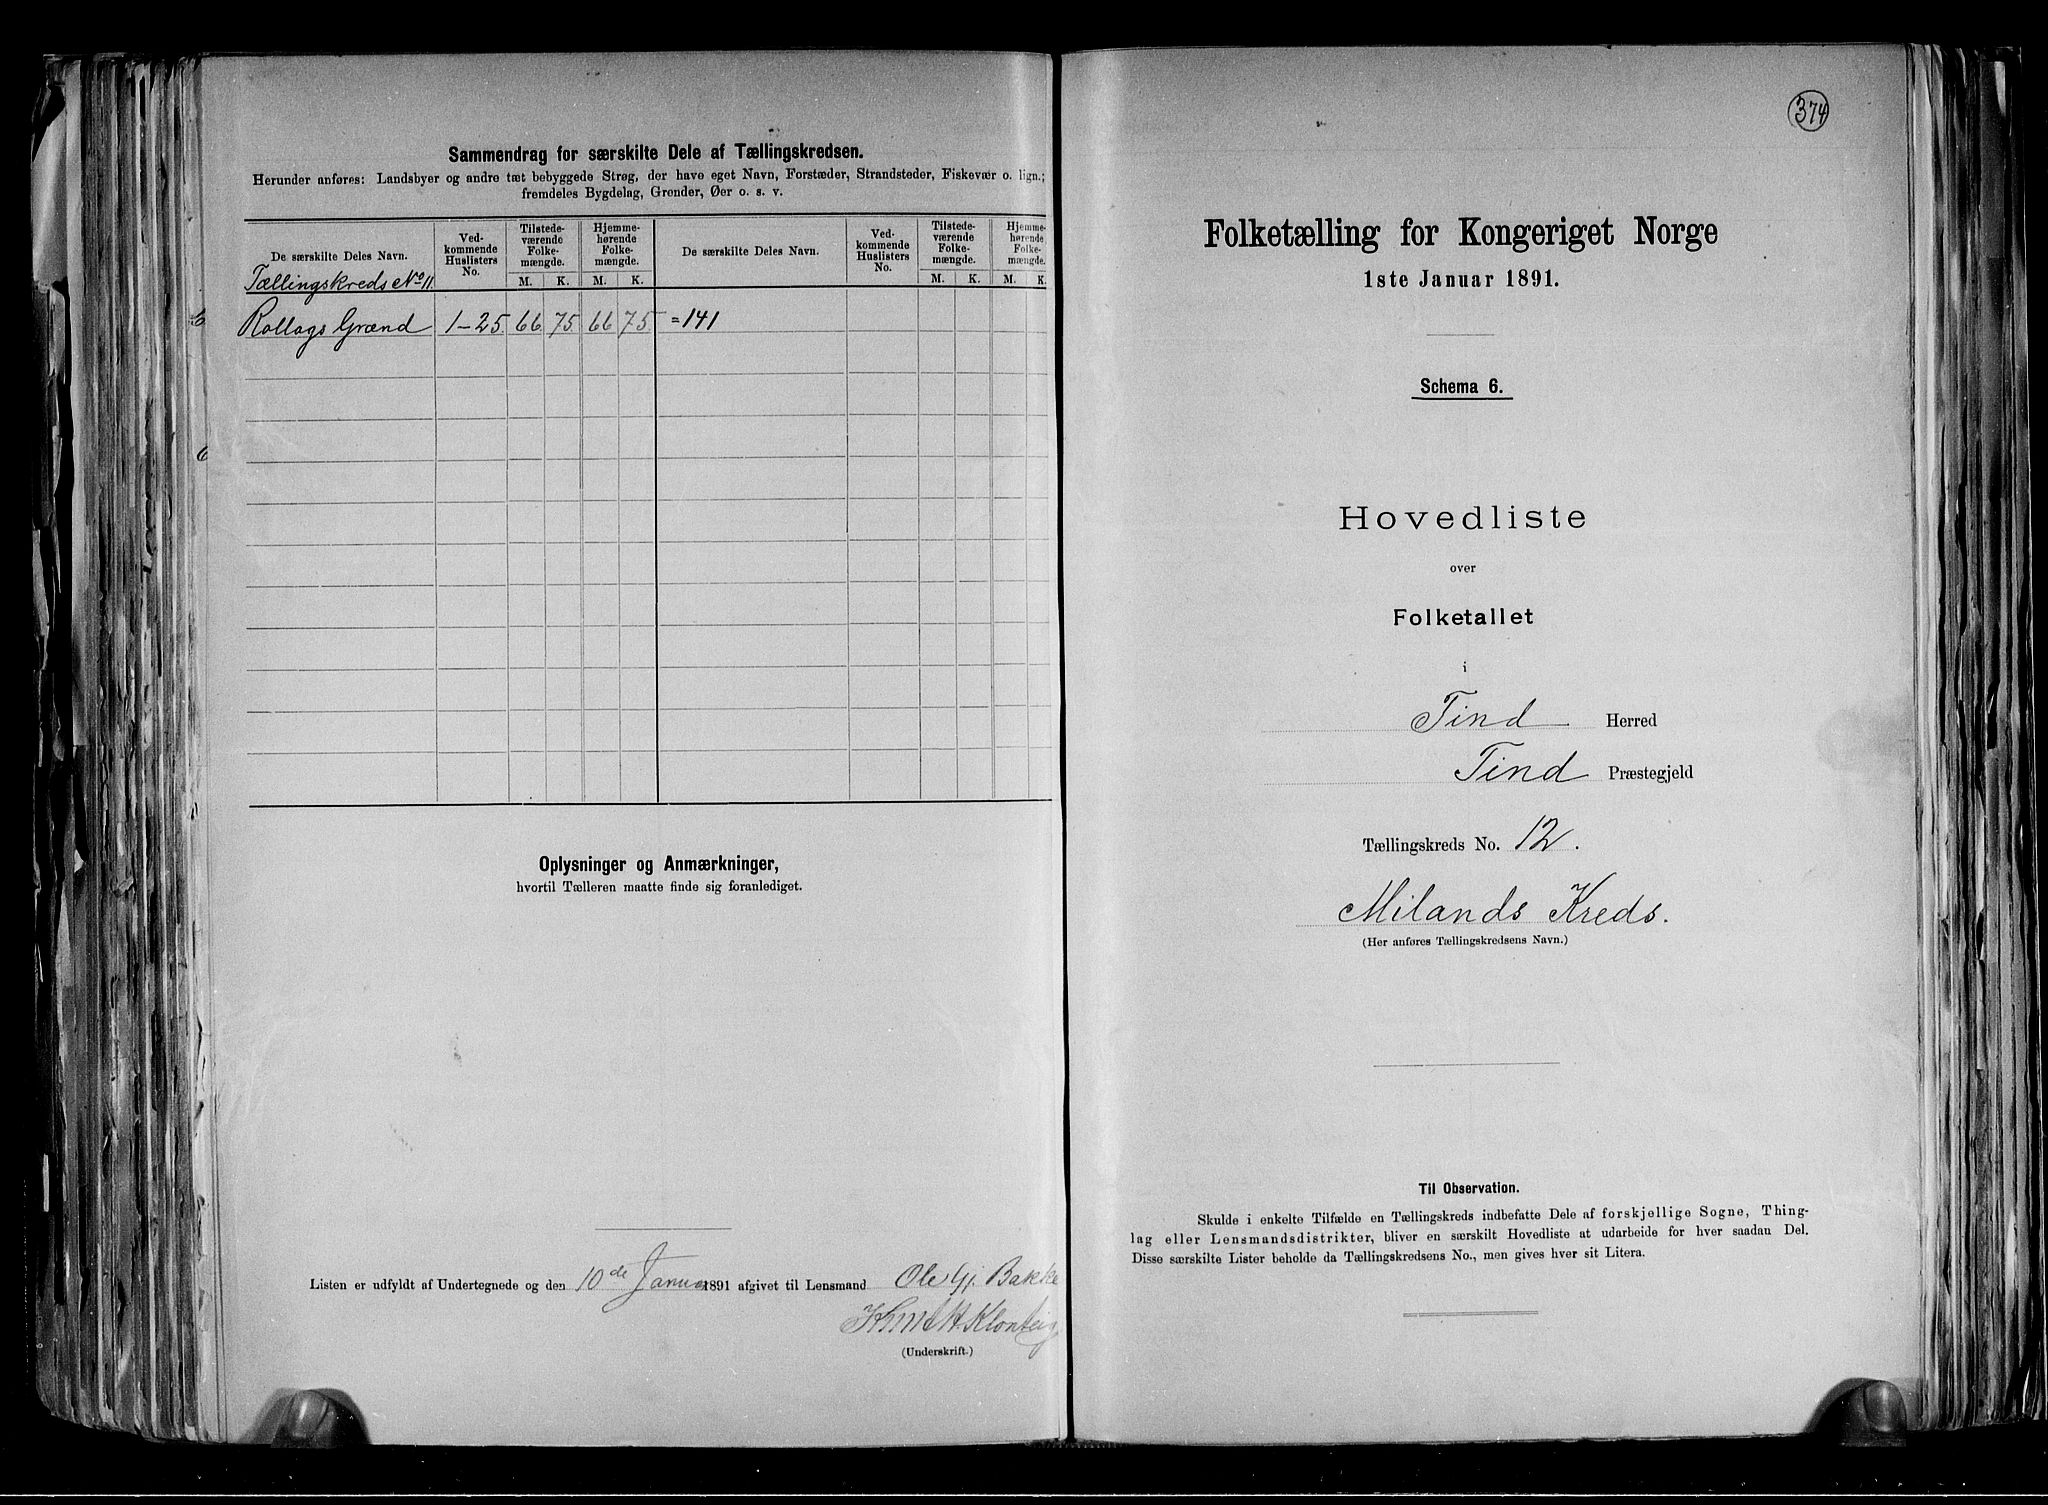 Sammendrag for særskilte Dele af Tællingskredsen.
Herunder anføres: Landsbyer og andre tæt bebyggede Strøg, der have eget Navn, Forstæder, Strandsteder, Fiskevær o. lign.;
fremdeles Bygdelag, Grender, Øer o. s. v.
De særskilte Deles Navn.
Ved-
kommende
Huslisters
No.
Tilstede-
værende
Folke-
mængde.
Hjemme-
hørende
Folke-
mængde.
De særskilte Deles Navn.
Ved-
kommende
Huslisters
No.
Tilstede-
værende
Folke-
mængde.
Hjemme-
hørende
Folke-
mængde.
M. K. M. K. M. K. M. K.
Tællingskreds No 11.
Rollags Grænd 1-25. 66. 75. 66 75. =141
Oplysninger og Anmærkninger,
hvortil Tælleren maatte finde sig foranlediget.
Listen er udfyldt af Undertegnede og den 10de Januar 1891 afgivet til Lensmand Ole Gj. Bakke
(Underskrift.)
374
Folketælling for Kongeriget Norge
1ste Januar 1891.
Schema 6.
Hovedliste
over
Folketallet
i
Tind Herred
Tind Præstegjeld
Tællingskreds No. 12.
Milands Kreds.
(Her anføres Tællingskredsens Navn.)
Til Observation.
Skulde i enkelte Tilfælde en Tællingskreds indbefatte Dele af forskjellige Sogne, Thing-
lag eller Lensmandsdistrikter, bliver en særskilt Hovedliste at udarbeide for hver saadan Del.
Disse særskilte Lister beholde da Tællingskredsens No., men gives hver sit Litera.